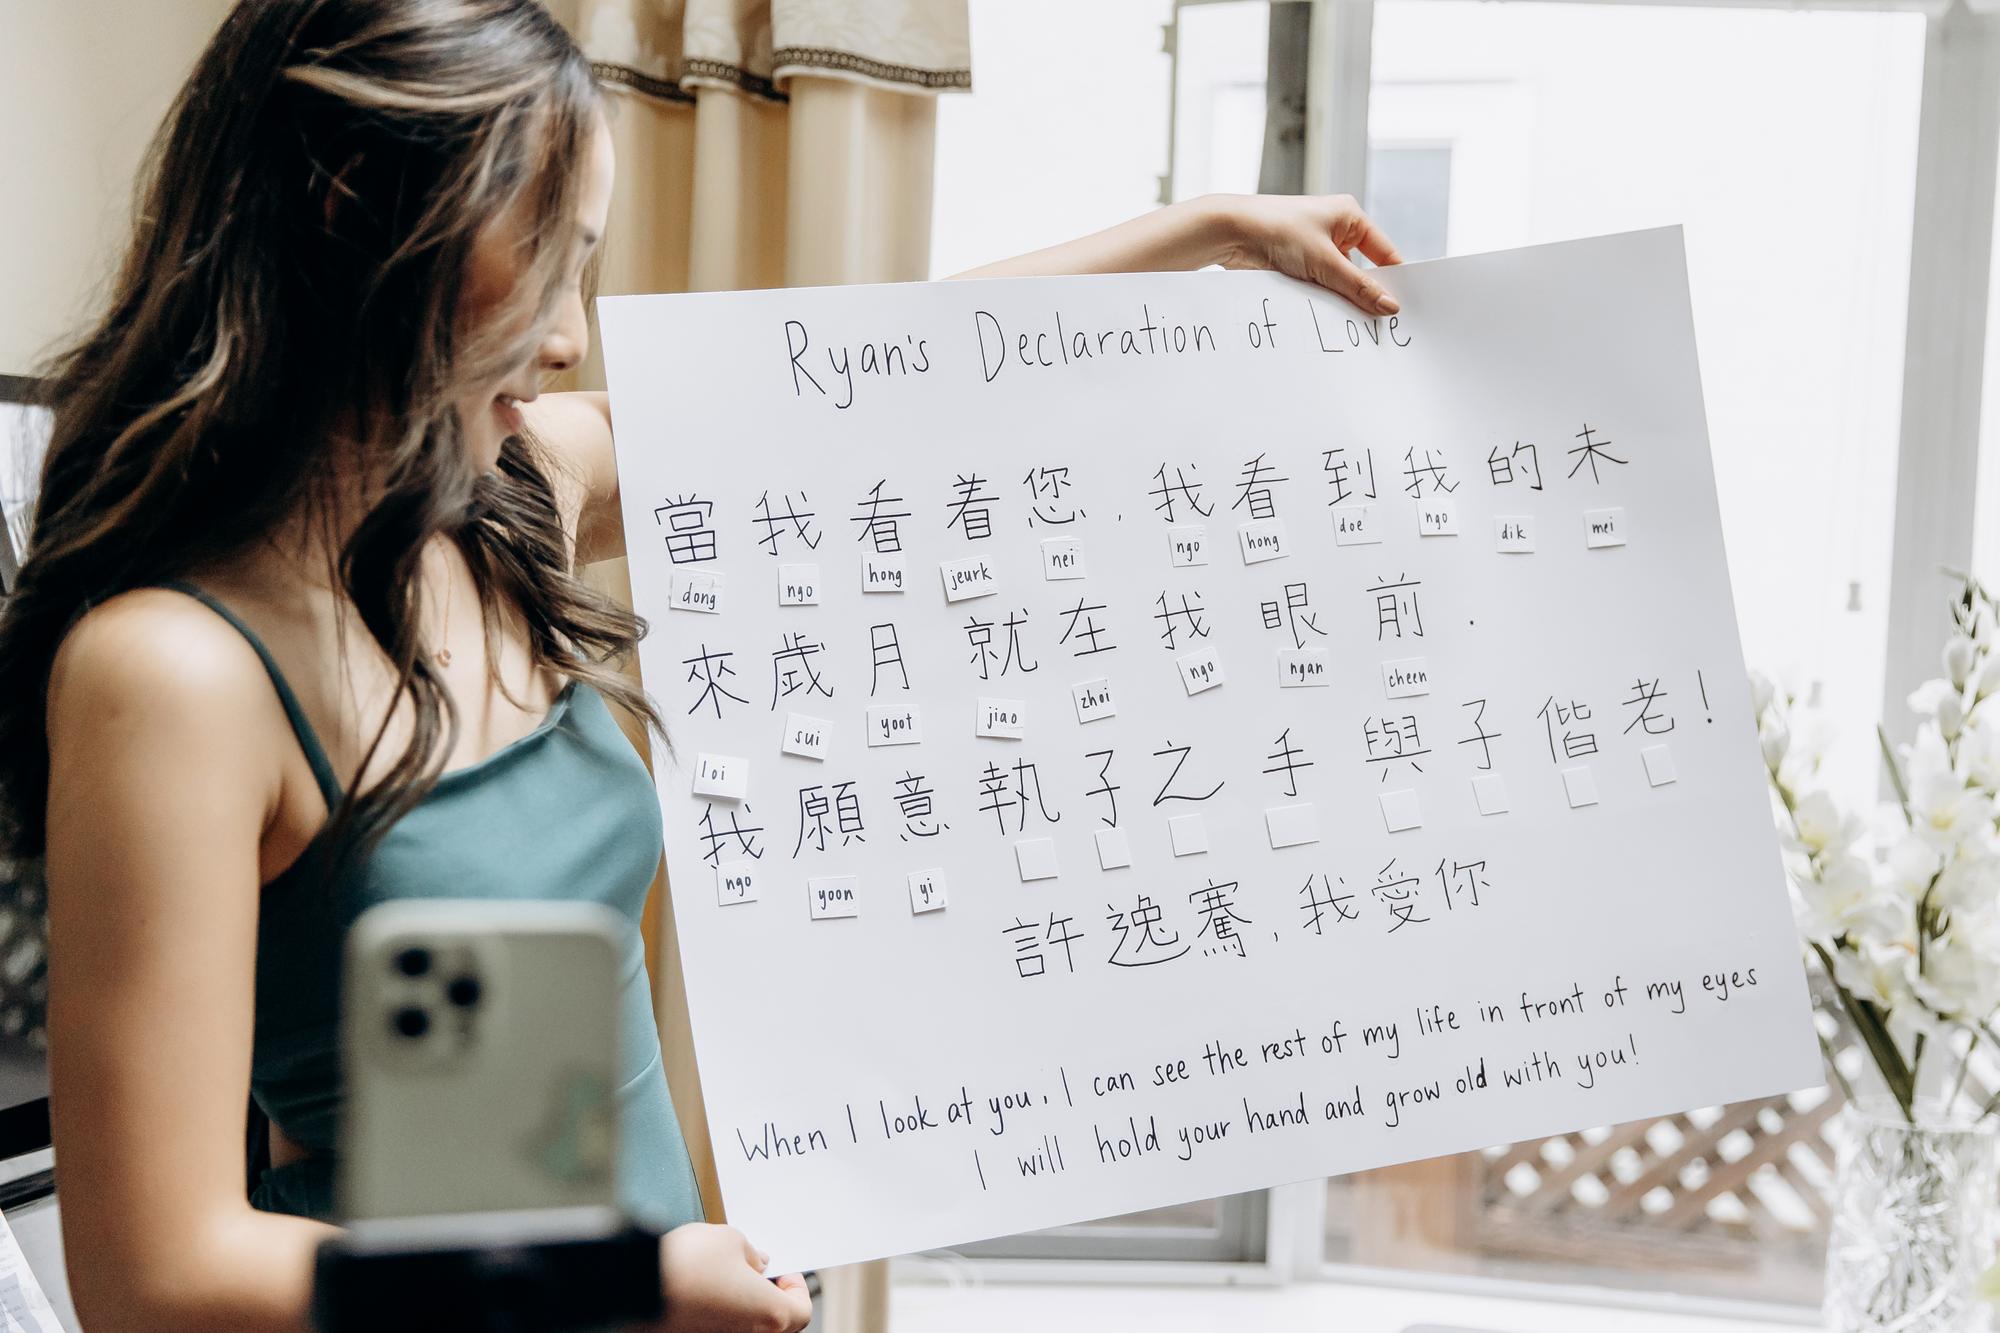 Ryan's Declaration of Love
當我看着您,我看到我的未
dong ngo hong jeurk nei ngo hong doe ngo dik mei
來歲月就在我眼前.
loi sui yoot jiao zhoi ngo ngan cheen
我願意執子之手與子偕老!
ngo yoon yi
許逸騫,我愛你
When I look at you, I can see the rest of my life in front of my eyes
I will hold your hand and grow old with you!